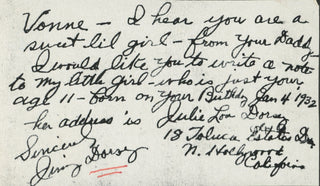 Vonne – I hear you are a
sweet lil girl – from your Daddy–
I would like you to write a note
to my little girl – who is just your
age 11 – born on your Birthday Jan 4 1932
her address is Julie Lou Dorsey
18 Toluca Estates Dr.
Sincerely N. Hollywood
Jimmy Dorsey California